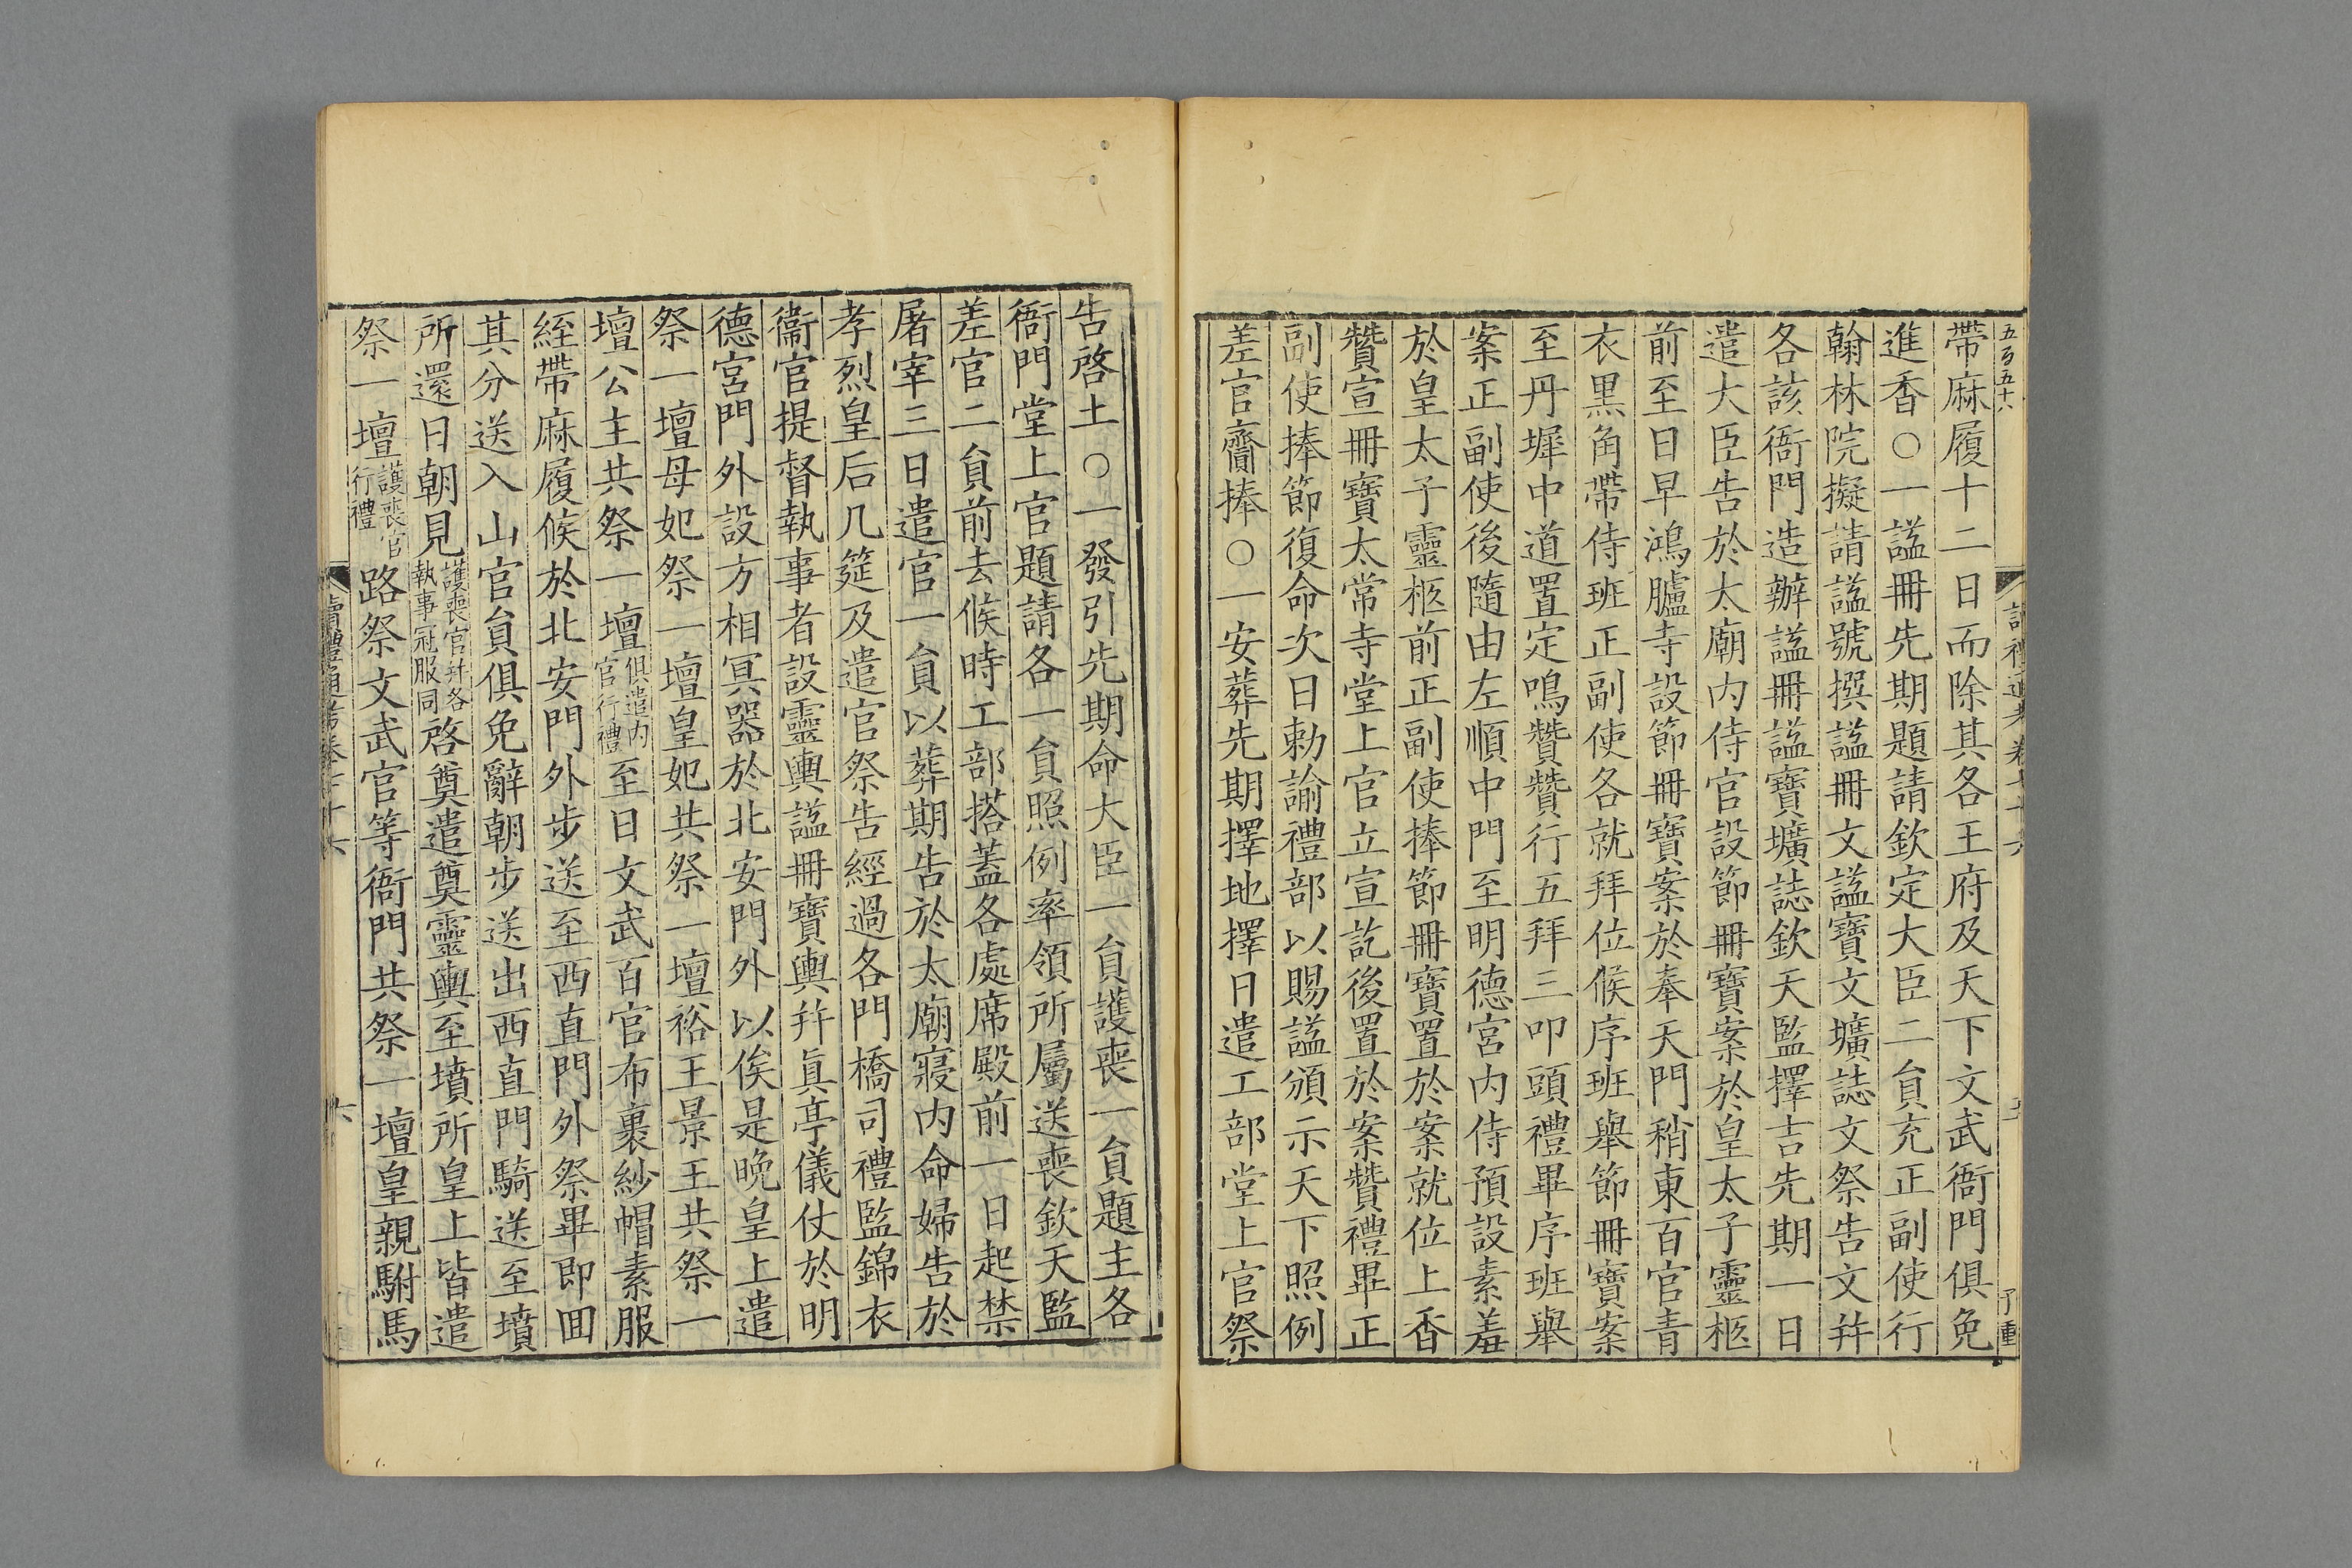 五百五十六
帶麻履十二日而除其各王府及天下文武衙門俱免
進香○一諡冊先期題請欽定大臣二員充正副使行
翰林院擬請諡號撰諡冊文諡寶文壙誌文祭告文幷
各該衙門造辦諡冊諡寶壙誌欽天監擇吉先期一日
遣大臣告於太廟內侍官設節冊寶案於皇太子靈柩
前至日早鴻臚寺設節冊寶案於奉天門稍東百官青
衣黑角帶侍班正副使各就拜位候序班舉節冊寶案
至丹墀中道置定鳴贊贊行五拜三叩頭禮畢序班舉
案正副使後隨由左順中門至明德宮內侍預設素羞
於皇太子靈柩前正副使捧節冊寶置於案就位上香
贊宣冊寶太常寺堂上官立宣訖後置於案贊禮畢正
副使捧節復命次日勅諭禮部以賜諡頒示天下照例
差官齎捧○一安葬先期擇地擇日遣工部堂上官祭
告啓土○一發引先期命大臣一員護喪一員題主各
衙門堂上官題請各一員照例率領所屬送喪欽天監
差官二員前去候時工部搭蓋各處席殿前一日起禁
屠宰三日遣官一員以葬期告於太廟寢內命婦告於
孝烈皇后几筵及遣官祭告經過各門橋司禮監錦衣
衞官提督執事者設靈輿諡冊寶輿幷真亭儀仗於明
德宮門外設方相冥器於北安門外以俟是晚皇上遣
祭一壇母妃祭一壇皇妃共祭一壇裕王景王共祭一
壇公主共祭一壇俱遣內官行禮至日文武百官布裹紗帽素服
絰帶麻履候於北安門外步送至西直門外祭畢即回
其分送入山官員俱免辭朝步送出西直門騎送至墳
所還日朝見護喪官幷各執事冠服同啓奠遣奠靈輿至墳所皇上皆遣
祭一壇護喪官行禮路祭文武官等衙門共祭一壇皇親駙馬
讀禮通考卷七十六
六